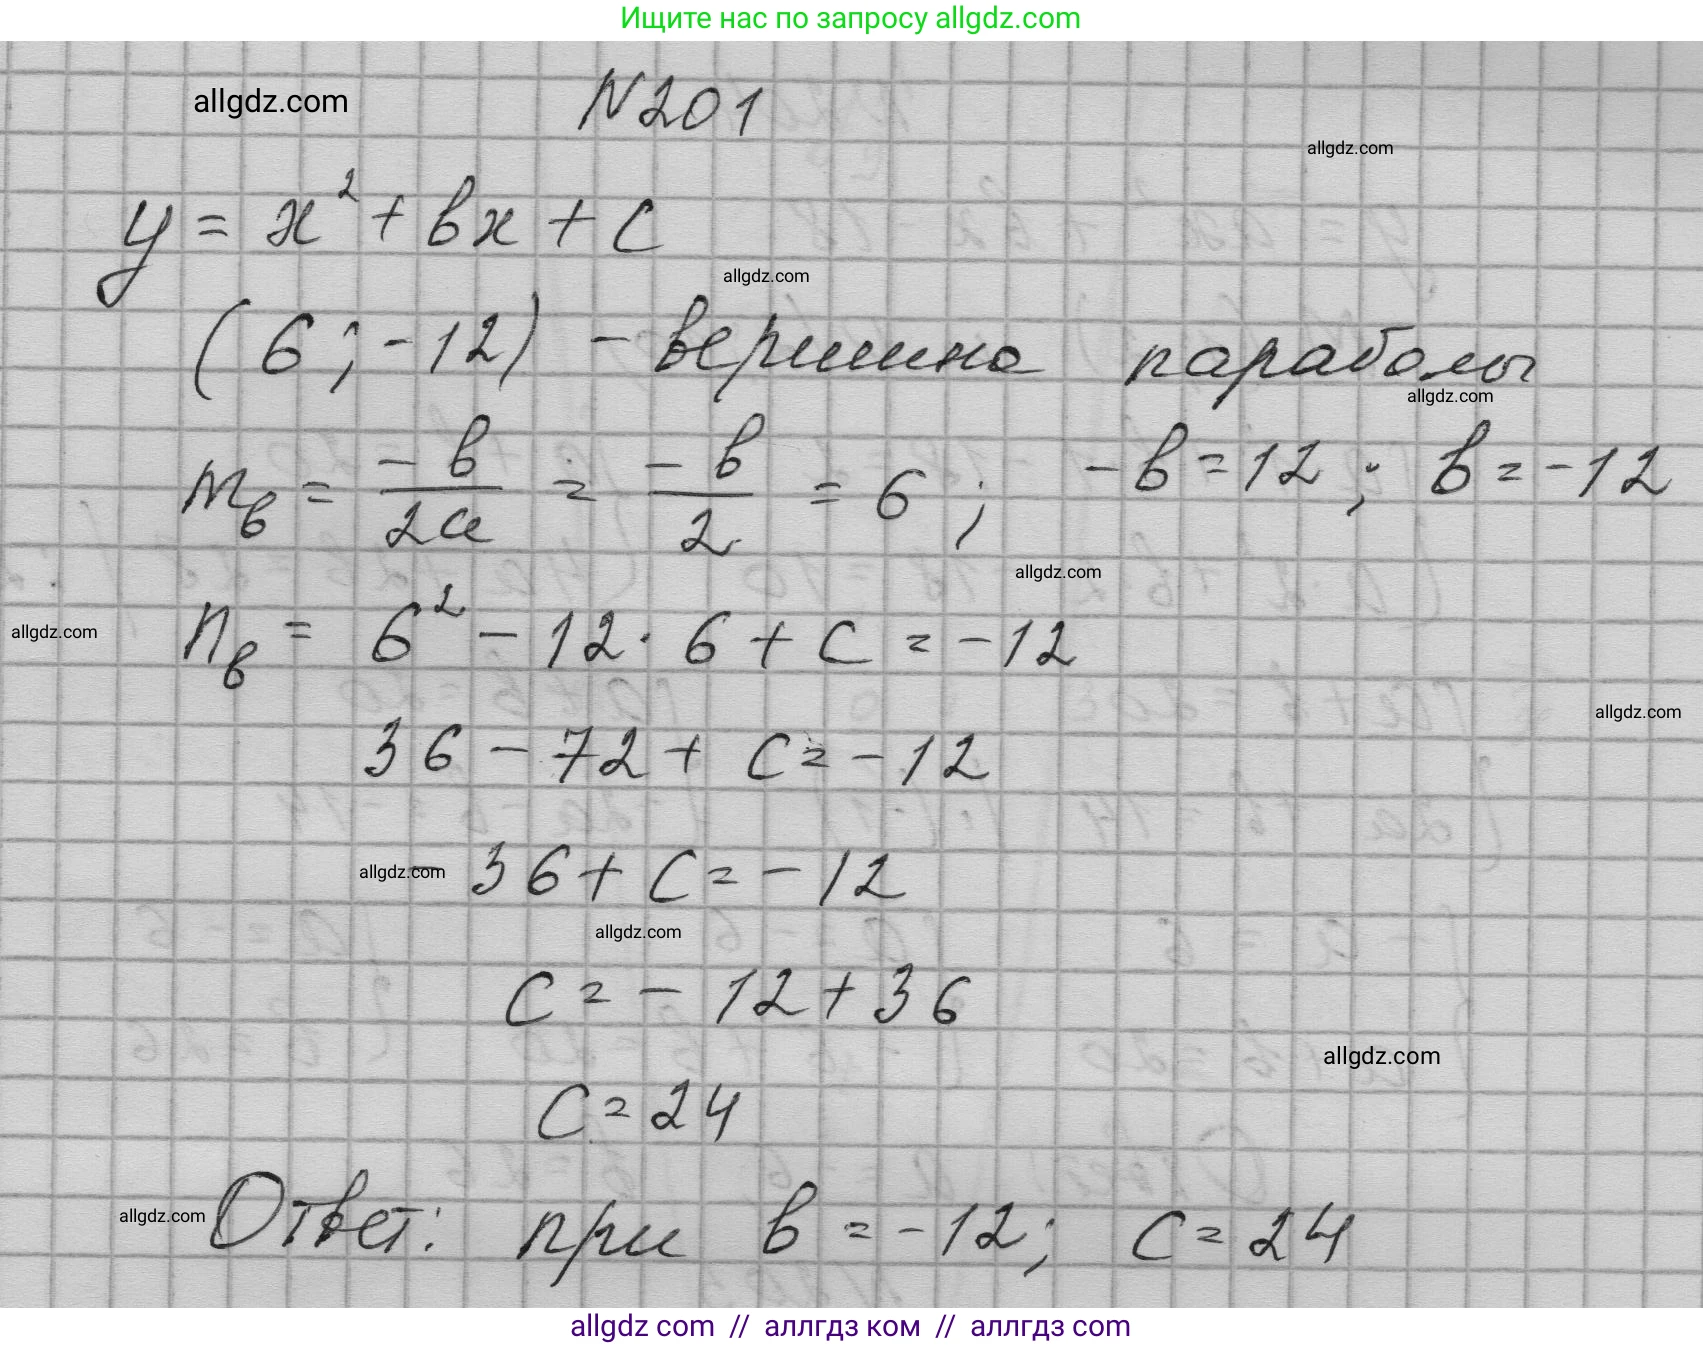 Ищите нас по запросу allgdz.com
allgdz.com
N201
allgdz.com
y = x² + bx + c
allgdz.com
(6; -12) - вершина параболы
allgdz.com
m_в = -b/2a = -b/2 = 6; -b = 12; b = -12
allgdz.com
n_в = 6² - 12 · 6 + c = -12
allgdz.com
allgdz.com
36 - 72 + c = -12
allgdz.com
- 36 + c = -12
allgdz.com
c = - 12 + 36
allgdz.com
c = 24
allgdz.com
Ответ: при b = -12; c = 24
allgdz com // аллгдз ком // аллгдз com